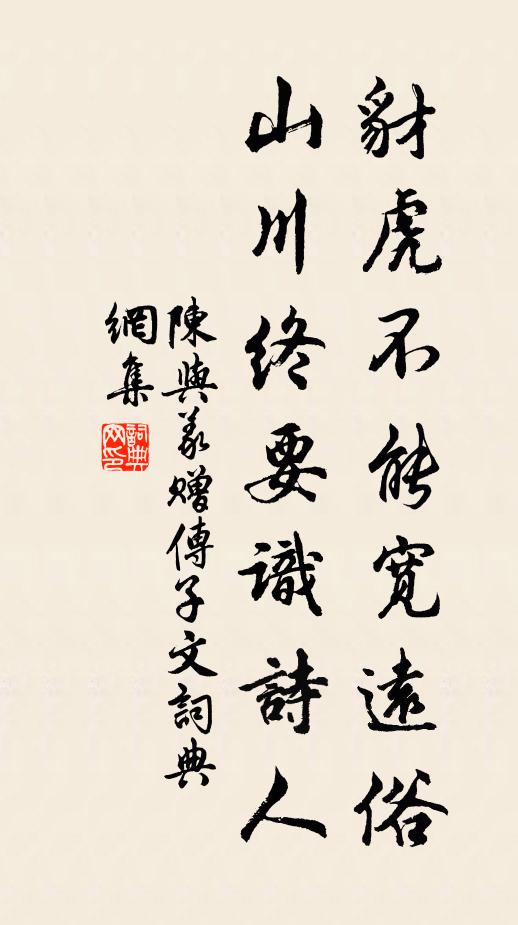 豺虎不能寬遠俗
山川終要識詩人
陳與義贈傅子文詞典
網集
詞典網印